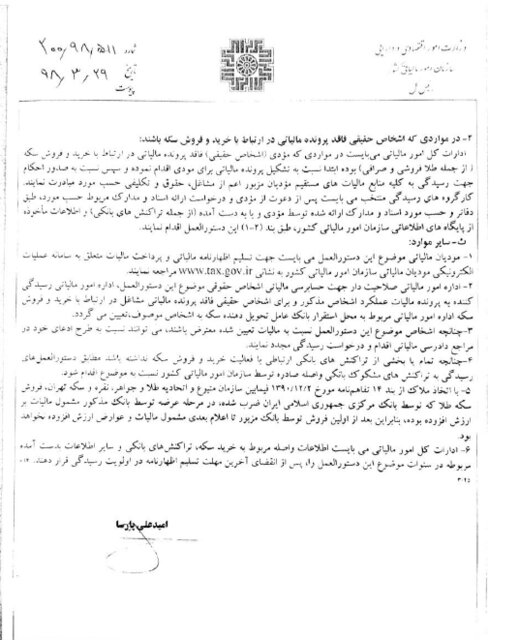 وزارت امور اقتصادی و دارایی
سازمان امور مالیاتی کشور
رئیس کل
شماره ۲۰۰/۹۸/۵۱۱
تاریخ ۹۸/۳/۲۹
پیوست
۲- در مواردی که اشخاص حقیقی فاقد پرونده مالیاتی در ارتباط با خرید و فروش سکه باشند:
ادارات کل امور مالیاتی می‌بایست در مواردی که مؤدی (اشخاص حقیقی) فاقد پرونده مالیاتی در ارتباط با خرید و فروش سکه
( از جمله طلا فروشی و صرافی) بوده ابتدا نسبت به تشکیل پرونده مالیاتی برای مودی اقدام نموده و سپس نسبت به صدور احکام
جهت رسیدگی به کلیه منابع مالیات های مستقیم مؤدیان مزبور اعم از مشاغل، حقوق و تکلیفی حسب مورد مبادرت نمایند.
کارگروه های رسیدگی منتخب می بایست پس از دعوت از مؤدی و درخواست ارائه اسناد و مدارک مربوط حسب مورد، طبق
دفاتر و حسب مورد اسناد و مدارک ارائه شده توسط مؤدی و یا به دست آمده (از جمله تراکنش های بانکی) و اطلاعات مأخوذه
از پایگاه های اطلاعاتی سازمان امور مالیاتی کشور، طبق بند (۲-۱) این دستورالعمل اقدام نمایند.
ث- سایر موارد:
۱- مودیان مالیاتی موضوع این دستورالعمل می بایست جهت تسلیم اظهارنامه مالیاتی و پرداخت مالیات متعلق به سامانه عملیات
الکترونیکی مودیان مالیاتی سازمان امور مالیاتی کشور به نشانی www.tax.gov.ir مراجعه نمایند.
۲- اداره امور مالیاتی صلاحیت دار جهت حسابرسی مالیاتی اشخاص حقوقی موضوع این دستورالعمل، اداره امور مالیاتی رسیدگی
کننده به پرونده مالیات عملکرد اشخاص مذکور و برای اشخاص حقیقی فاقد پرونده مالیاتی مشاغل در ارتباط با خرید و فروش
سکه اداره امور مالیاتی مربوط به محل استقرار بانک عامل تحویل دهنده سکه به اشخاص موصوف، تعیین می گردد.
۳-چنانچه اشخاص موضوع این دستورالعمل نسبت به مالیات تعیین شده معترض باشند، می توانند نسبت به طرح ادعای خود در
مراجع دادرسی مالیاتی اقدام و درخواست رسیدگی مجدد نمایند.
۴-چنانچه تمام یا بخشی از تراکنش های بانکی ارتباطی با فعالیت خرید و فروش سکه نداشته باشد مطابق دستورالعمل‌های
رسیدگی به تراکنش های مشکوک بانکی واصله صادره توسط سازمان امور مالیاتی کشور نسبت به موضوع اقدام شود.
۵- با اتخاذ ملاک از بند ۱۴ تفاهم‌نامه مورخ ۱۳۹۰/۱۲/۲ فیمابین سازمان متبوع و اتحادیه طلا و جواهر، نقره و سکه تهران، فروش
سکه طلا که توسط بانک مرکزی جمهوری اسلامی ایران ضرب شده، در مرحله عرضه توسط بانک مذکور مشمول مالیات بر
ارزش افزوده بوده، بنابراین بعد از اولین فروش توسط بانک مزبور تا اعلام بعدی مشمول مالیات و عوارض ارزش افزوده نخواهد
بود.
۶- ادارات کل امور مالیاتی می بایست اطلاعات واصله مربوط به خرید سکه، تراکنش‌های بانکی و سایر اطلاعات بدست آمده
مربوطه در سنوات موضوع این دستورالعمل را، پس از انقضای آخرین مهلت تسلیم اظهارنامه در اولویت رسیدگی قرار دهند.
امیدعلی پارسا